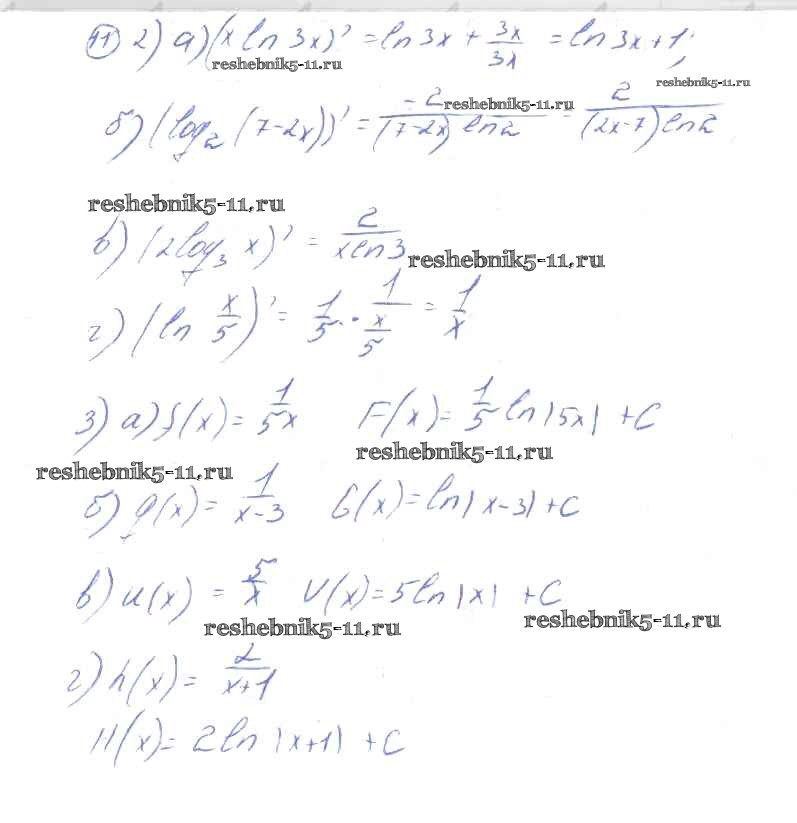 11) 2) а) (x ln 3x)' = ln 3x + 3x/3x = ln 3x + 1;
reshebnik5-11.ru
reshebnik5-11.ru
б) (log₂ (7-2x))' = -2/((7-2x) ln 2) = 2/((2x-7) ln 2)
reshebnik5-11.ru
reshebnik5-11.ru
в) (2log₃ x)' = 2/(x ln 3)
reshebnik5-11.ru
г) (ln x/5)' = 1/5 · 1/(x/5) = 1/x
3) а) f(x) = 1/5x F(x) = 1/5 ln |5x| + C
reshebnik5-11.ru
reshebnik5-11.ru
б) g(x) = 1/(x-3) G(x) = ln |x-3| + C
в) u(x) = 5/x U(x) = 5 ln |x| + C
reshebnik5-11.ru
reshebnik5-11.ru
г) h(x) = 2/(x+1)
H(x) = 2 ln |x+1| + C